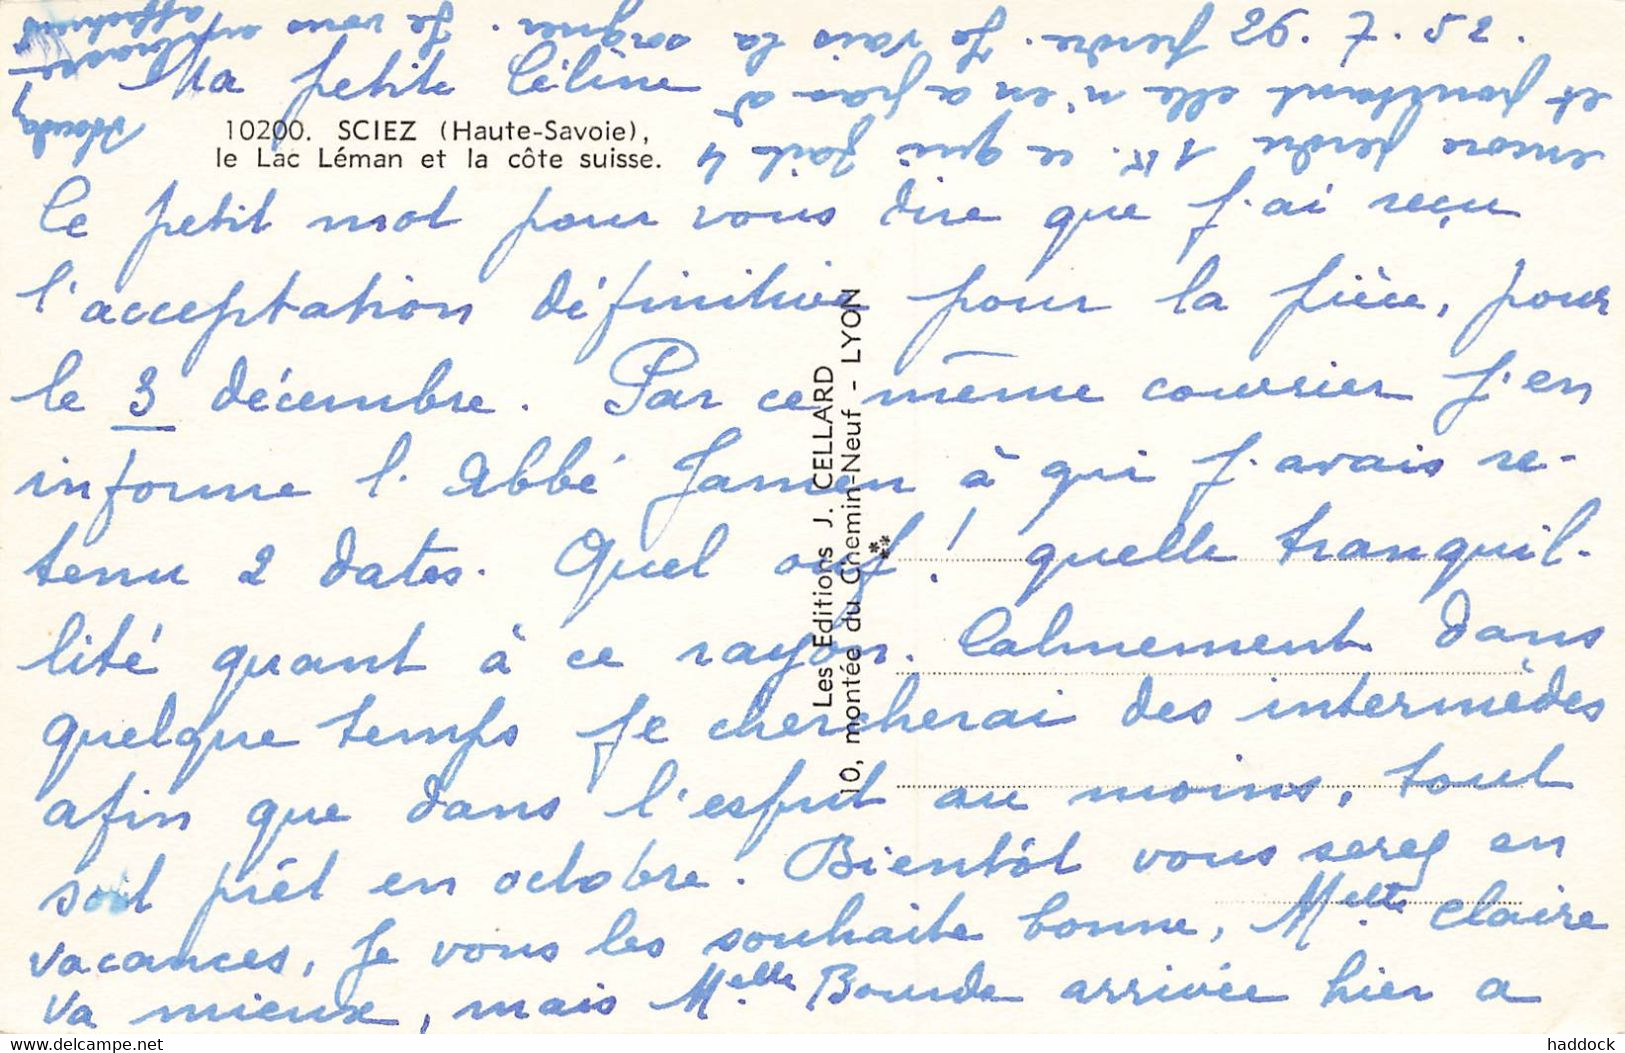 26.7.52.
Ma petite Céline
10200. SCIEZ (Haute-Savoie),
le Lac Léman et la côte suisse.
Ce petit mot pour vous dire que j'ai reçu
l'acceptation définitive pour la pièce, pour
le 3 décembre. Par ce même courrier j'en
informe l'Abbé à qui j'avais re-
tenu 2 dates. Quel ouf! quelle tranquil-
lité quant à ce rayon. Calmement dans
quelque temps je chercherai des intermèdes
afin que dans l'esprit au moins, tout
soit prêt en octobre. Bientôt vous serez en
vacances, je vous les souhaite bonne, Melle Claire
va mieux, mais Melle Bourde arrivée hier a
encore perdu 1K. ce qui fait 4
et pourtant elle n'en a pas à
perdre. Je vais la soigner. Je vous
Les Editions J. CELLARD
10, montée du Chemin-Neuf - LYON
haddock